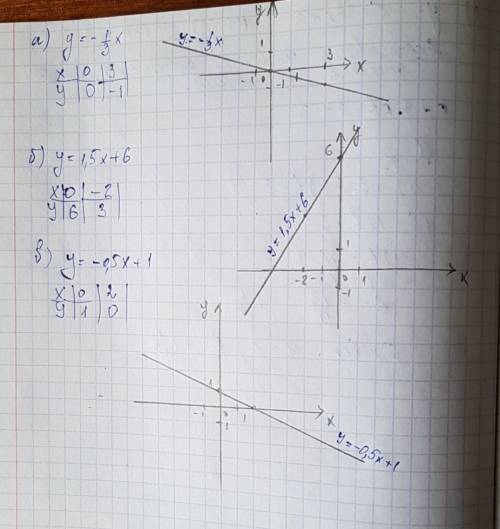 а) y = -1/3x
x | 0 | 3
y | 0 | -1
y = -1/3x
y
1
-1 0 1 3 x
-1
б) y = 1,5x + 6
x | 0 | -2
y | 6 | 3
y
6
y = 1,5x + 6
1
-2 -1 0 1 x
-1
в) y = -0,5x + 1
x | 0 | 2
y | 1 | 0
y
1
-1 0 1 x
-1
y = -0,5x + 1